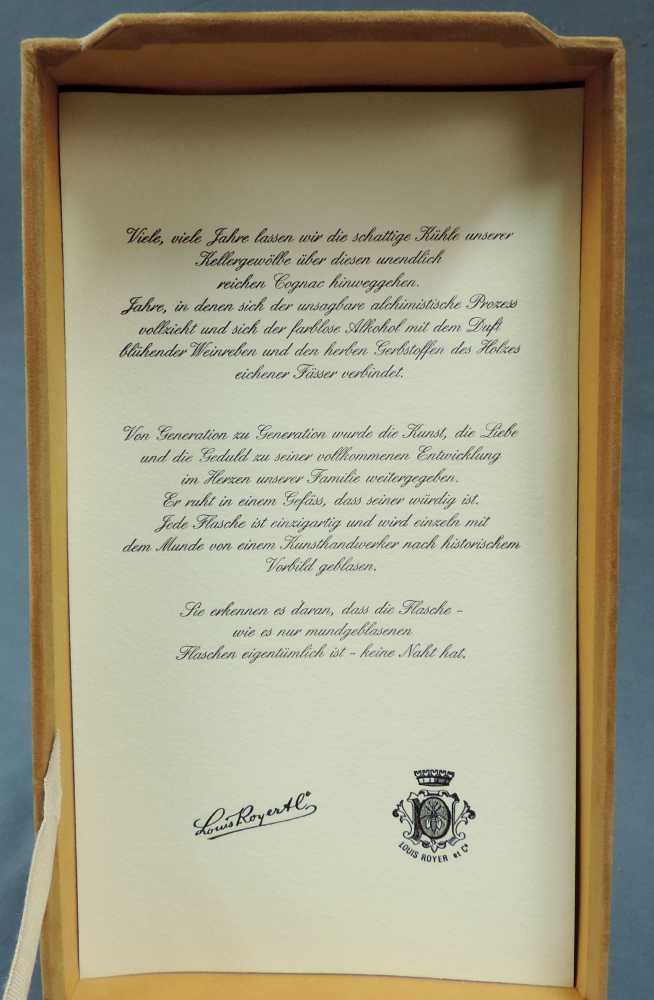 Viele, viele Jahre lassen wir die schattige Kühle unserer
Kellergewölbe über diesen unendlich
reichen Cognac hinweggehen.
Jahre, in denen sich der unsagbare alchimistische Prozess
vollzieht und sich der farblose Alkohol mit dem Duft
blühender Weinreben und den herben Gerbstoffen des Holzes
eichener Fässer verbindet.
Von Generation zu Generation wurde die Kunst, die Liebe
und die Geduld zu seiner vollkommenen Entwicklung
im Herzen unserer Familie weitergegeben.
Er ruht in einem Gefäss, dass seiner würdig ist.
Jede Flasche ist einzigartig und wird einzeln mit
dem Munde von einem Kunsthandwerker nach historischem
Vorbild geblasen.
Sie erkennen es daran, dass die Flasche -
wie es nur mundgeblasenen
Flaschen eigentümlich ist - keine Naht hat.
Louis Royer et Co
LOUIS ROYER et Co